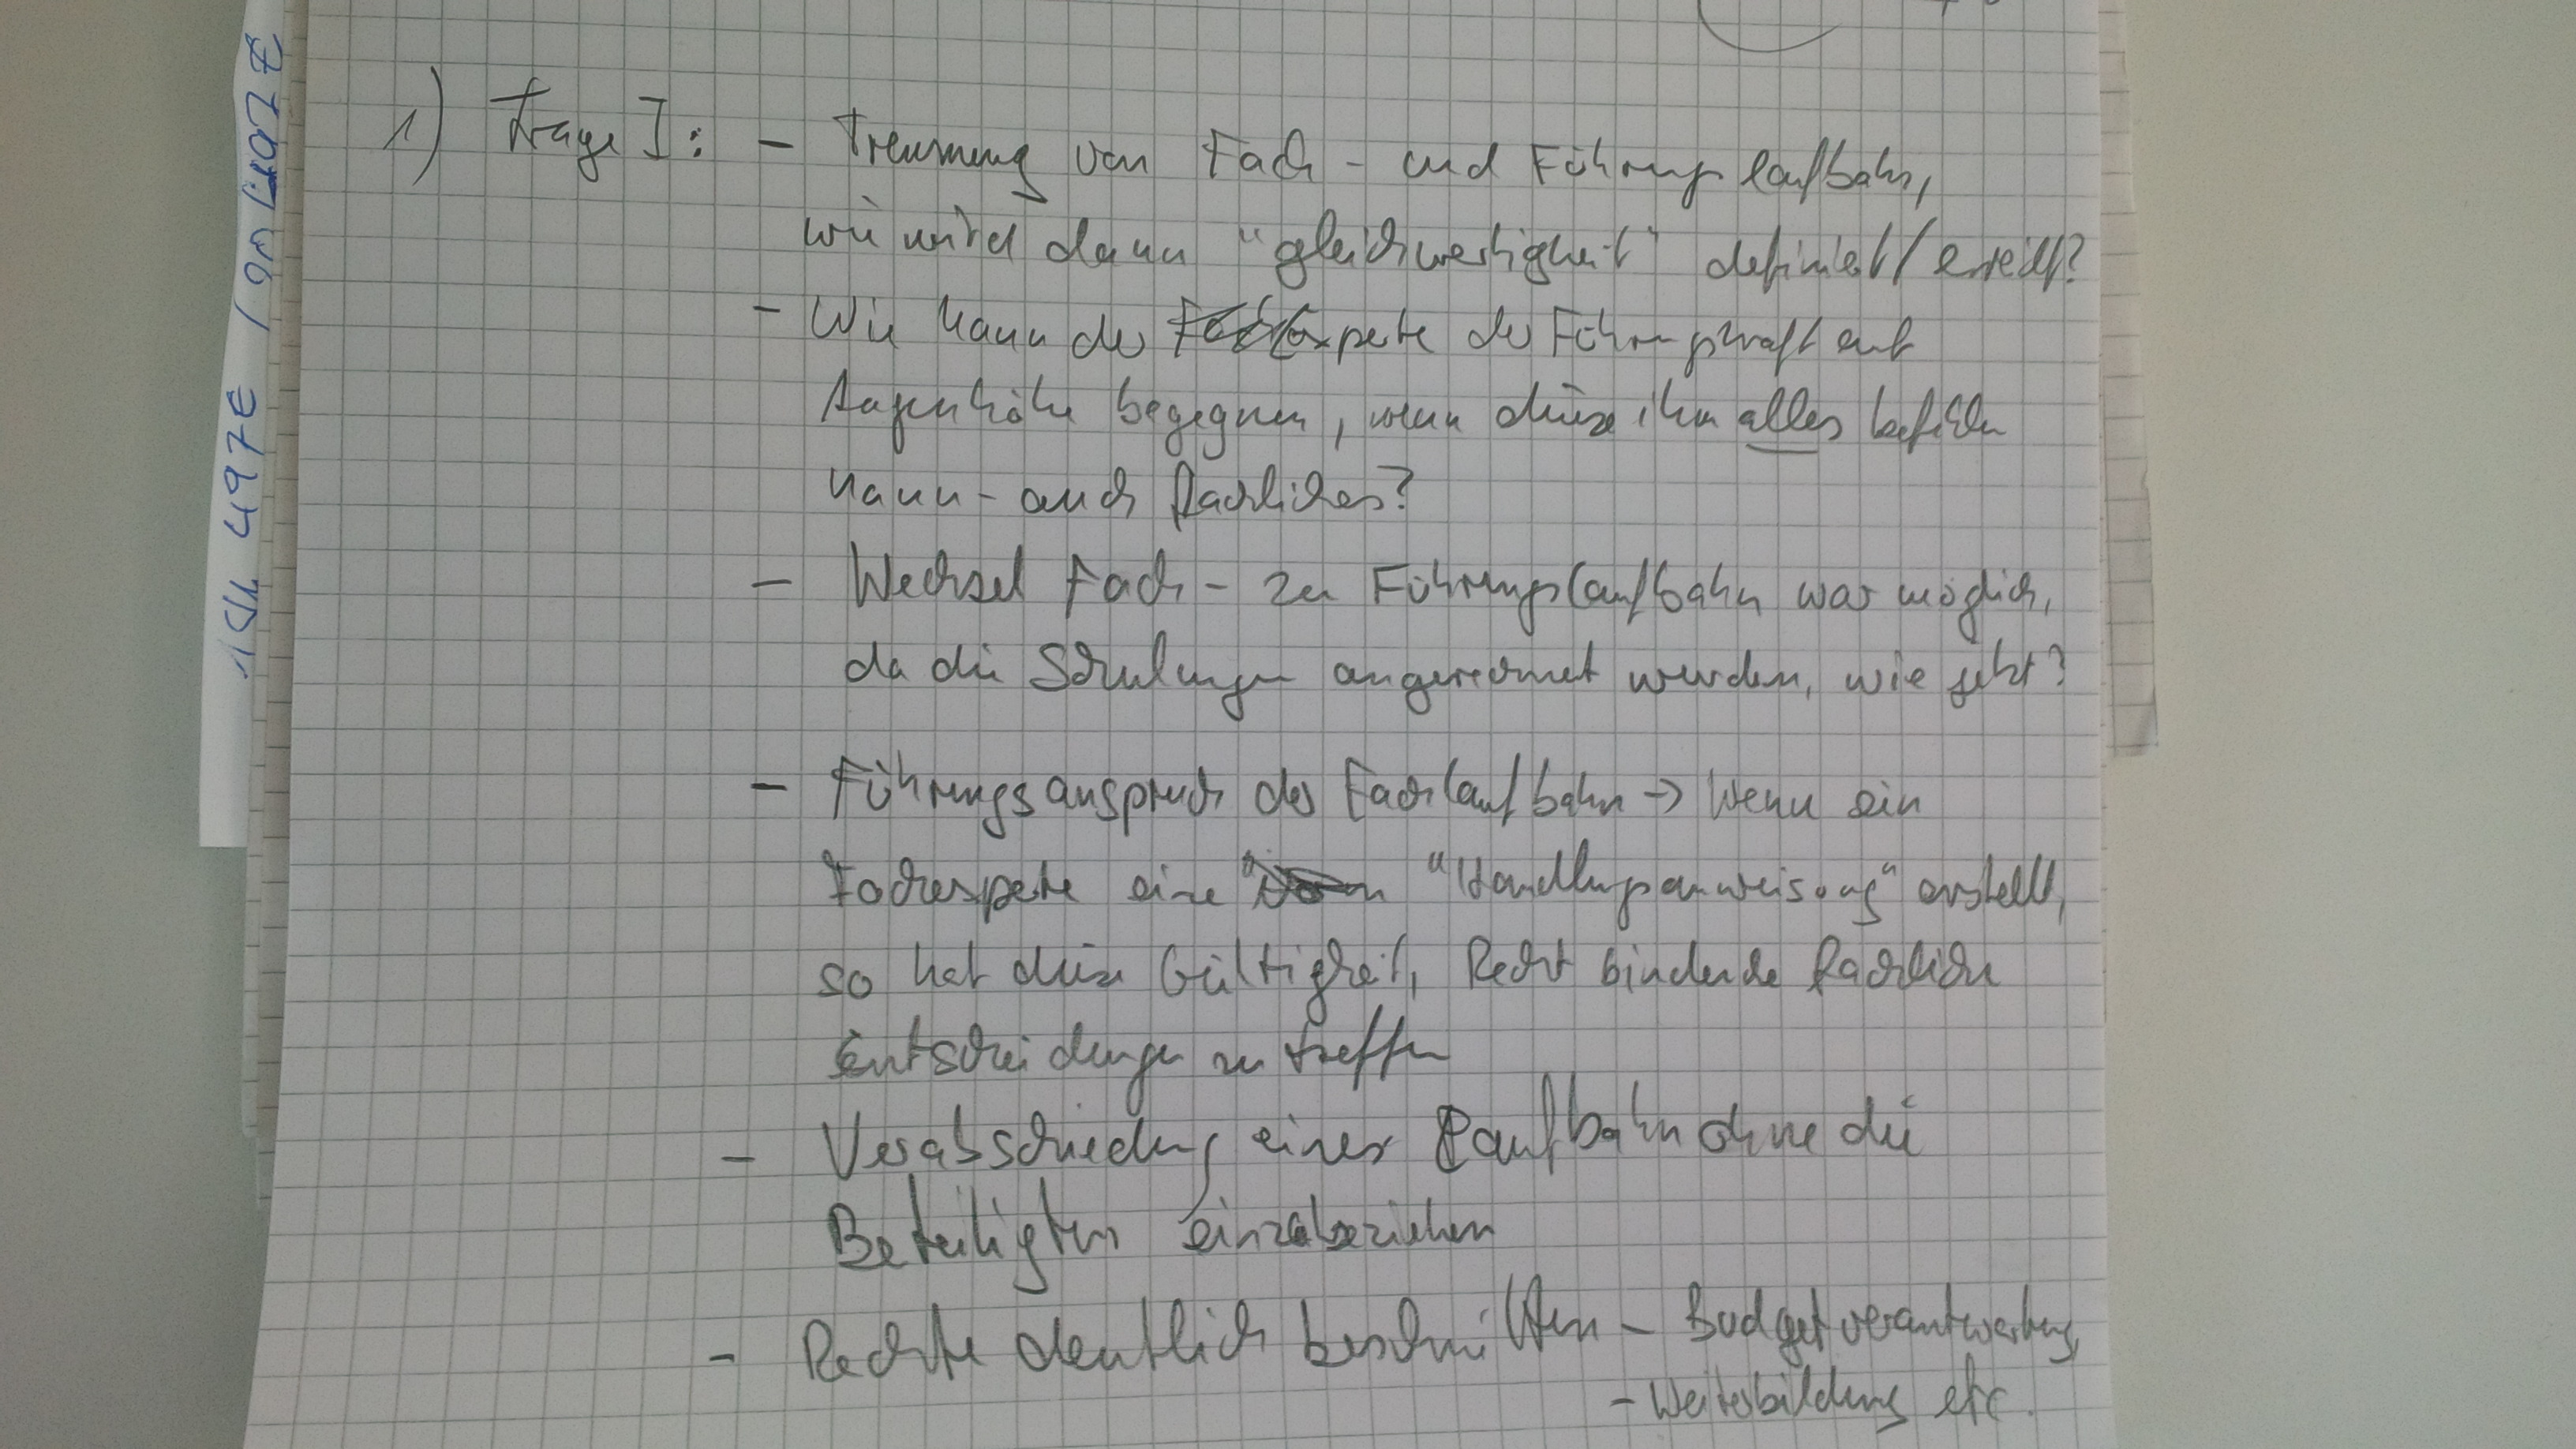 1) Frage I: - Trennung von Fach- und Führungslaufbahn,
wie wird dann "gleichwertigkeit" definiert/erzielt?
- Wie kann der Experte der Führungskraft auf
Augenhöhe begegnen, wenn diese ihm alles befehlen
kann - auch fachliches?
- Wechsel Fach- zu Führungslaufbahn war möglich,
da die Schulungen angerechnet wurden, wie jetzt?
- Führungsanspruch der Fachlaufbahn → Wenn ein
Fachexperte eine "Handlungsanweisung" erstellt,
so hat diese Gültigkeit, Recht bindende fachliche
Entscheidungen zu treffen
- Verabschiedung einer Laufbahn ohne die
Beteiligten einzubeziehen
- Rechte deutlich beschnitten - Budgetverantwortung
- Weiterbildung etc.